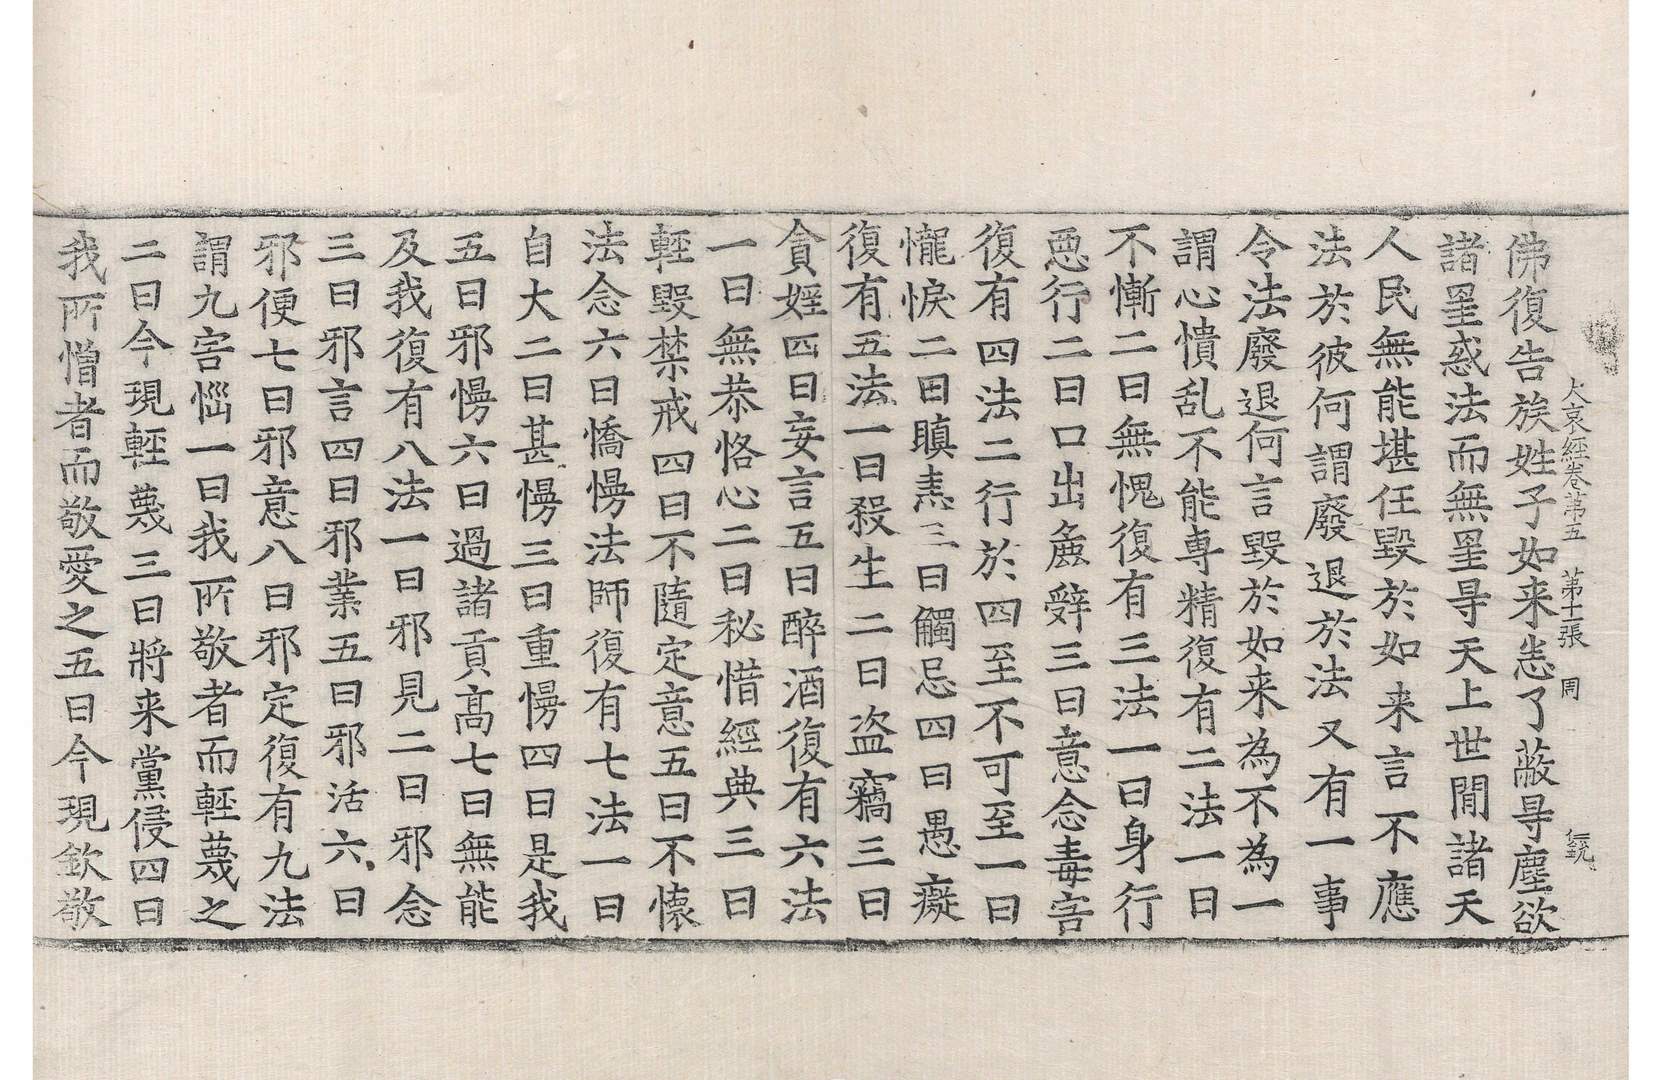 大哀經卷第五　第十一張　周
佛復告族姓子如来悉了蔽㝵塵欲
諸罣惑法而無罣㝵天上世間諸天
人民無能堪任毀於如来言不應
法於彼何謂廢退於法又有一事
令法廢退何言毀於如来為不為一
謂心憒乱不能専精復有二法一曰
不慚二曰無愧復有三法一曰身行
惡行二曰口出麁辤三曰意念毒害
復有四法二行於四至不可至一曰
㦬悷二曰瞋恚三曰觸忌四曰愚癡
復有五法一曰殺生二曰盗竊三曰
貪婬四曰妄言五曰醉酒復有六法
一曰無恭恪心二曰秘惜經典三曰
輕毀禁戒四曰不隨定意五曰不懐
法念六曰憍慢法師復有七法一曰
自大二曰甚慢三曰重慢四曰是我
五曰邪慢六曰過諸貢髙七曰無能
及我復有八法一曰邪見二曰邪念
三曰邪言四曰邪業五曰邪活六曰
邪便七曰邪意八曰邪定復有九法
謂九害惱一曰我所敬者而輕蔑之
二曰今現輕蔑三曰將来黨侵四曰
我所憎者而敬愛之五曰今現欽敬